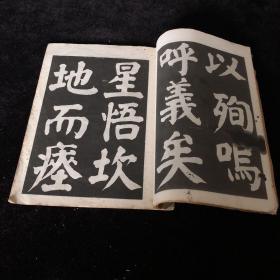 以殉嗚
呼義矣
星悟坎
地而瘞